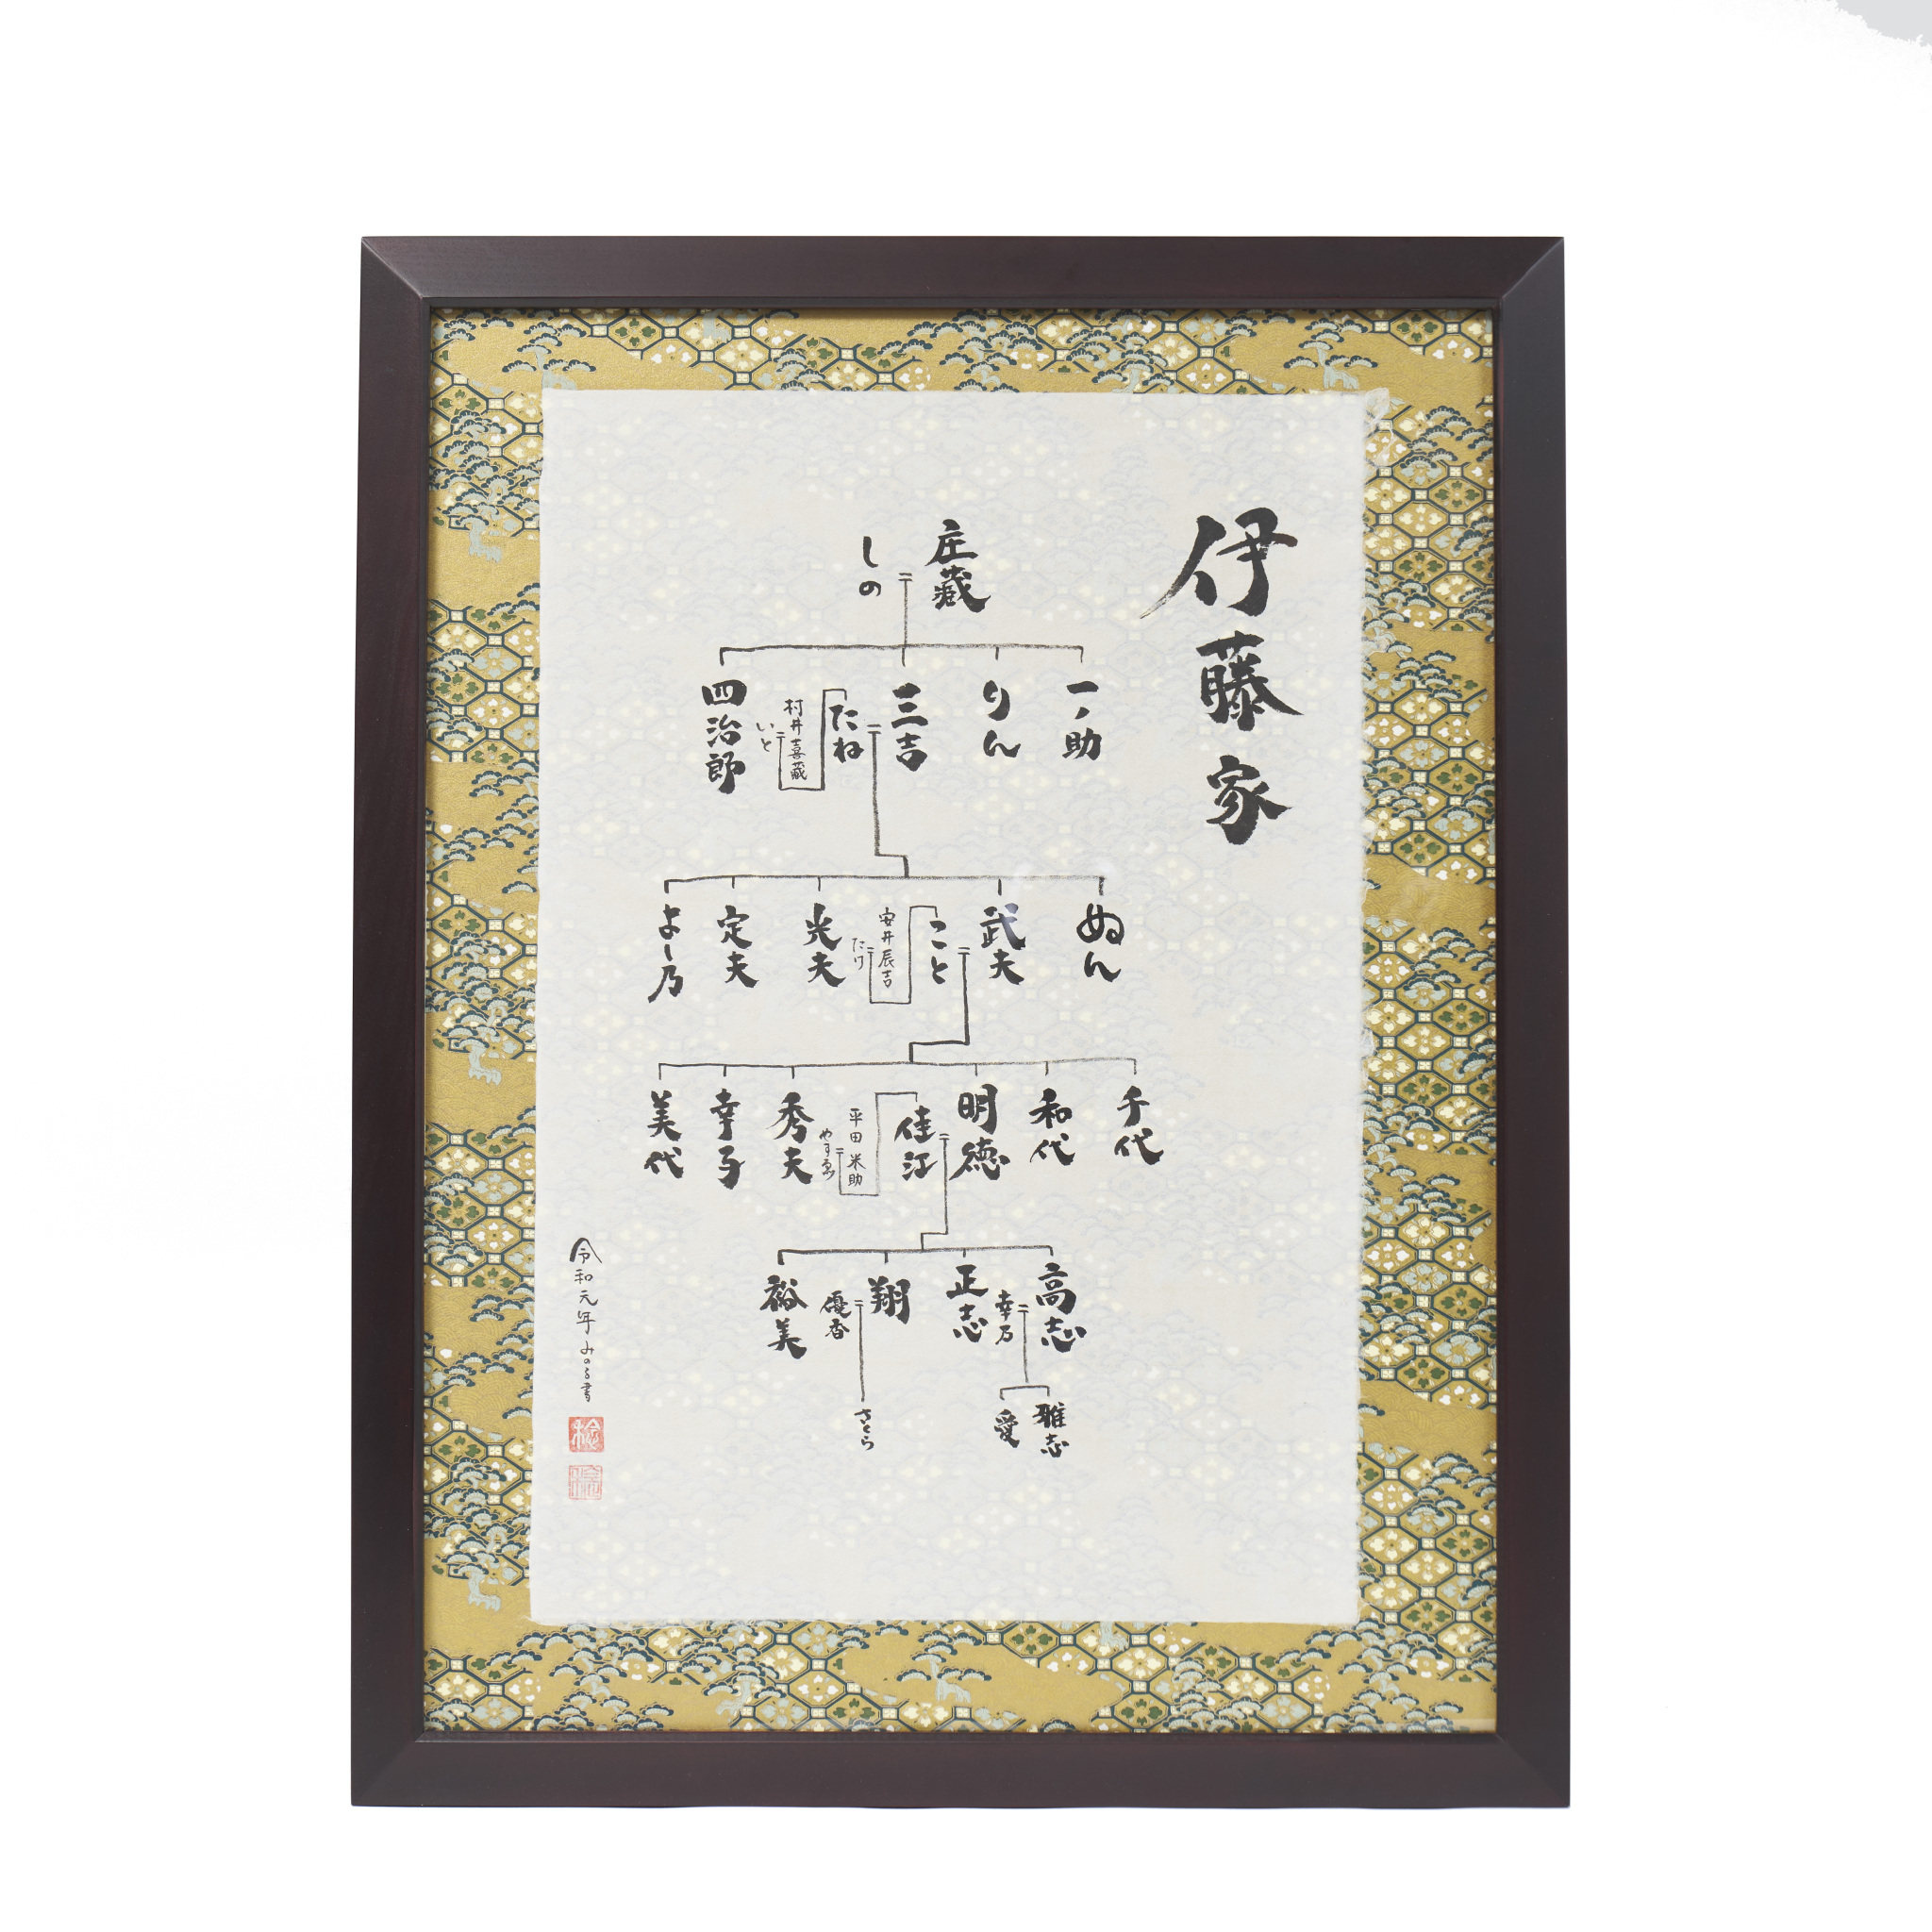 伊藤家
庄蔵
しの
一ノ助
りん
三吉
たね
村井喜蔵
いと
四治郎
ぬん
武夫
こと
安井辰吉
たけ
光夫
定夫
よし乃
千代
和代
明徳
佳江
平田米助
やすゑ
秀夫
幸子
美代
高志
幸乃
正志
翔
優香
裕美
雅志
愛
さくら
令和元年みのる書